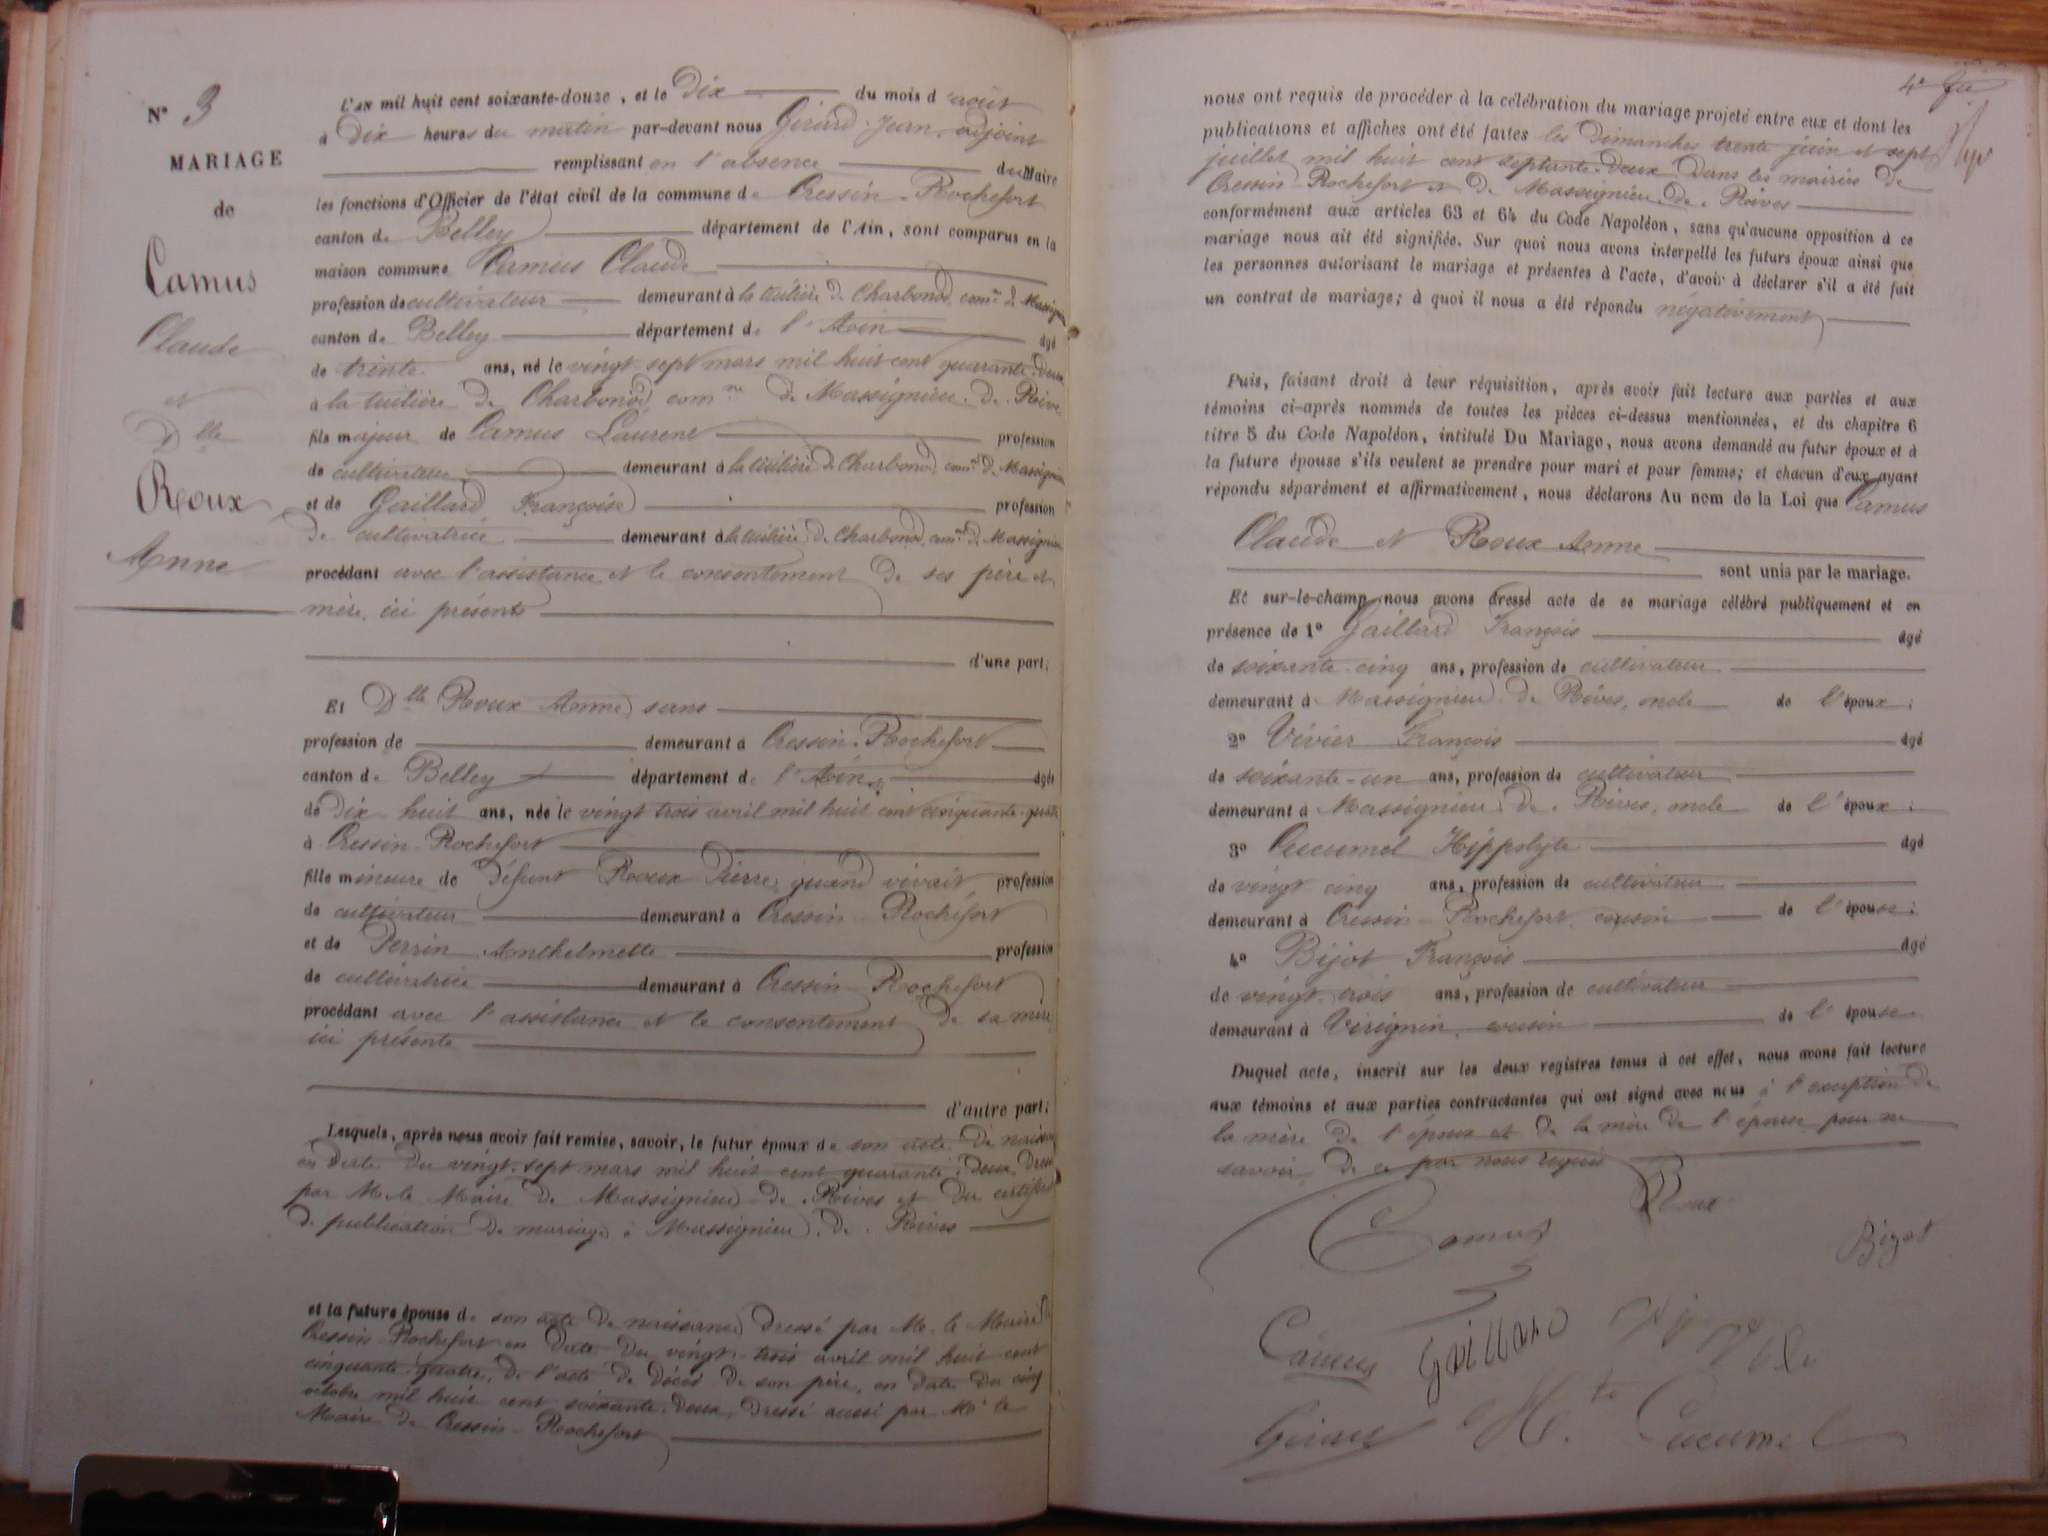 N° 3
MARIAGE
de
Camus
Claude
et
Dlle
Roux
Anne
L'an mil huit cent soixante-douze, et le dix du mois d'août
à dix heures du matin par-devant nous Girard Jean, adjoint
remplissant en l'absence du Maire
les fonctions d'Officier de l'état civil de la commune de Cressin-Rochefort
canton de Belley département de l'Ain, sont comparus en la
maison commune Camus Claude
profession de cultivateur demeurant à la tuilière de Charbonod, comne de Massignieu
canton de Belley département de l'Ain âgé
de trente ans, né le vingt-sept mars mil huit cent quarante-deux
à la tuilière de Charbonod comne de Massignieu-de-Rives
fils majeur de Camus Laurent profession
de cultivateur demeurant à la tuilière de Charbonod, comne de Massignieu
et de Gaillard Françoise profession
de cultivatrice demeurant à la tuilière de Charbonod, comne de Massignieu
procédant avec l'assistance et le consentement de ses père et
mère, ici présents
d'une part;
Et Dlle Roux Anne, sans
profession de demeurant à Cressin-Rochefort
canton de Belley département de l'Ain âgée
de dix huit ans, née le vingt trois avril mil huit cent cinquante-quatre
à Cressin-Rochefort
fille mineure de défunt Roux Pierre, quand vivait, profession
de cultivateur demeurant à Cressin-Rochefort
et de Perrin Anthelmette profession
de cultivatrice demeurant à Cressin-Rochefort
procédant avec l'assistance et le consentement de sa mère
ici présente
d'autre part;
Lesquels, après nous avoir fait remise, savoir, le futur époux de son acte de naissance
en date du vingt-sept mars mil huit cent quarante-deux, dressé
par M. le Maire de Massignieu-de-Rives et du certificat
de publication de mariage à Massignieu-de-Rives
et la future épouse de son acte de naissance dressé par M. le Maire de
Cressin-Rochefort en date du vingt-trois avril mil huit cent
cinquante-quatre, de l'acte de décès de son père, en date du cinq
octobre mil huit cent soixante-deux, dressé aussi par Mr le
Maire de Cressin-Rochefort
4e
nous ont requis de procéder à la célébration du mariage projeté entre eux et dont les
publications et affiches ont été faites les dimanches trente juin et sept
juillet mil huit cent septante-deux dans les mairies de
Cressin-Rochefort et de Massignieu-de-Rives
conformément aux articles 63 et 64 du Code Napoléon, sans qu'aucune opposition à ce
mariage nous ait été signifiée. Sur quoi nous avons interpellé les futurs époux ainsi que
les personnes autorisant le mariage et présentes à l'acte, d'avoir à déclarer s'il a été fait
un contrat de mariage; à quoi il nous a été répondu négativement
Puis, faisant droit à leur réquisition, après avoir fait lecture aux parties et aux
témoins ci-après nommés de toutes les pièces ci-dessus mentionnées, et du chapitre 6
titre 5 du Code Napoléon, intitulé Du Mariage, nous avons demandé au futur époux et à
la future épouse s'ils veulent se prendre pour mari et pour femme; et chacun d'eux ayant
répondu séparément et affirmativement, nous déclarons Au nom de la Loi que Camus
Claude et Roux Anne
sont unis par le mariage.
Et sur-le-champ nous avons dressé acte de ce mariage célébré publiquement et en
présence de 1° Gaillard François âgé
de soixante-cinq ans, profession de cultivateur
demeurant à Massignieu-de-Rives, oncle de l'époux;
2° Vivier François âgé
de soixante-un ans, profession de cultivateur
demeurant à Massignieu-de-Rives, oncle de l'époux;
3° Cucumel Hippolyte âgé
de vingt cinq ans, profession de cultivateur
demeurant à Cressin-Rochefort, cousin de l'épouse;
4° Bijot François âgé
de vingt-trois ans, profession de cultivateur
demeurant à Virignin, cousin de l'épouse.
Duquel acte, inscrit sur les deux registres tenus à cet effet, nous avons fait lecture
aux témoins et aux parties contractantes qui ont signé avec nous à l'exception de
la mère de l'époux et de la mère de l'épouse pour ne
savoir, de ce par nous requis
Roux
Camus
Bigot
Camus
Gaillard
Girard
Hte Cucumel